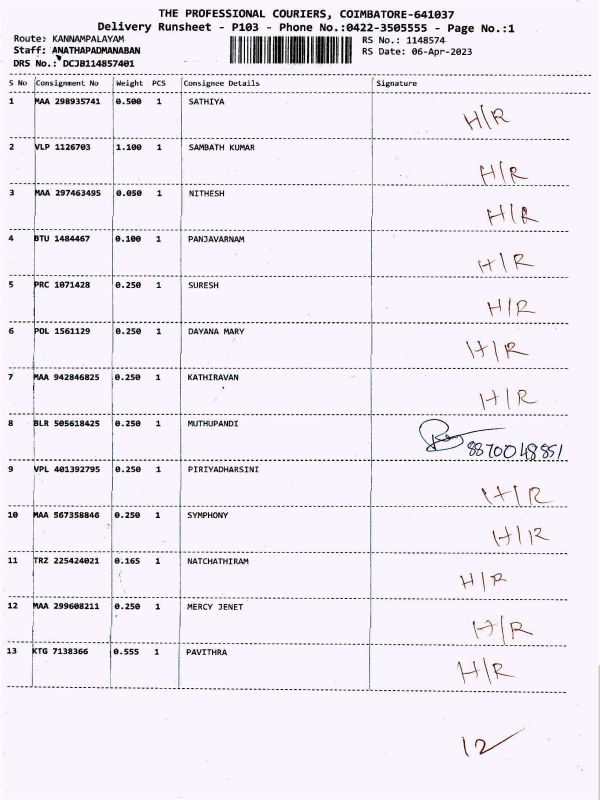 THE PROFESSIONAL COURIERS, COIMBATORE-641037
Delivery Runsheet - P103 - Phone No.:0422-3505555 - Page No.:1
Route: KANNAMPALAYAM RS No.: 1148574
Staff: ANATHAPADMANABAN RS Date: 06-Apr-2023
DRS No.: DCJB114857401
S No Consignment No Weight PCS Consignee Details Signature
1 MAA 298935741 0.500 1 SATHIYA
H/R
2 VLP 1126703 1.100 1 SAMBATH KUMAR
H/R
3 MAA 297463495 0.050 1 NITHESH
H/R
4 BTU 1484467 0.100 1 PANJAVARNAM
H/R
5 PRC 1071428 0.250 1 SURESH
H/R
6 POL 1561129 0.250 1 DAYANA MARY
H/R
7 MAA 942846825 0.250 1 KATHIRAVAN
H/R
8 BLR 505618425 0.250 1 MUTHUPANDI
8870048851
9 VPL 401392795 0.250 1 PIRIYADHARSINI
H/R
10 MAA 567358846 0.250 1 SYMPHONY
H/R
11 TRZ 225424021 0.165 1 NATCHATHIRAM
H/R
12 MAA 299608211 0.250 1 MERCY JENET
H/R
13 KTG 7138366 0.555 1 PAVITHRA
H/R
12